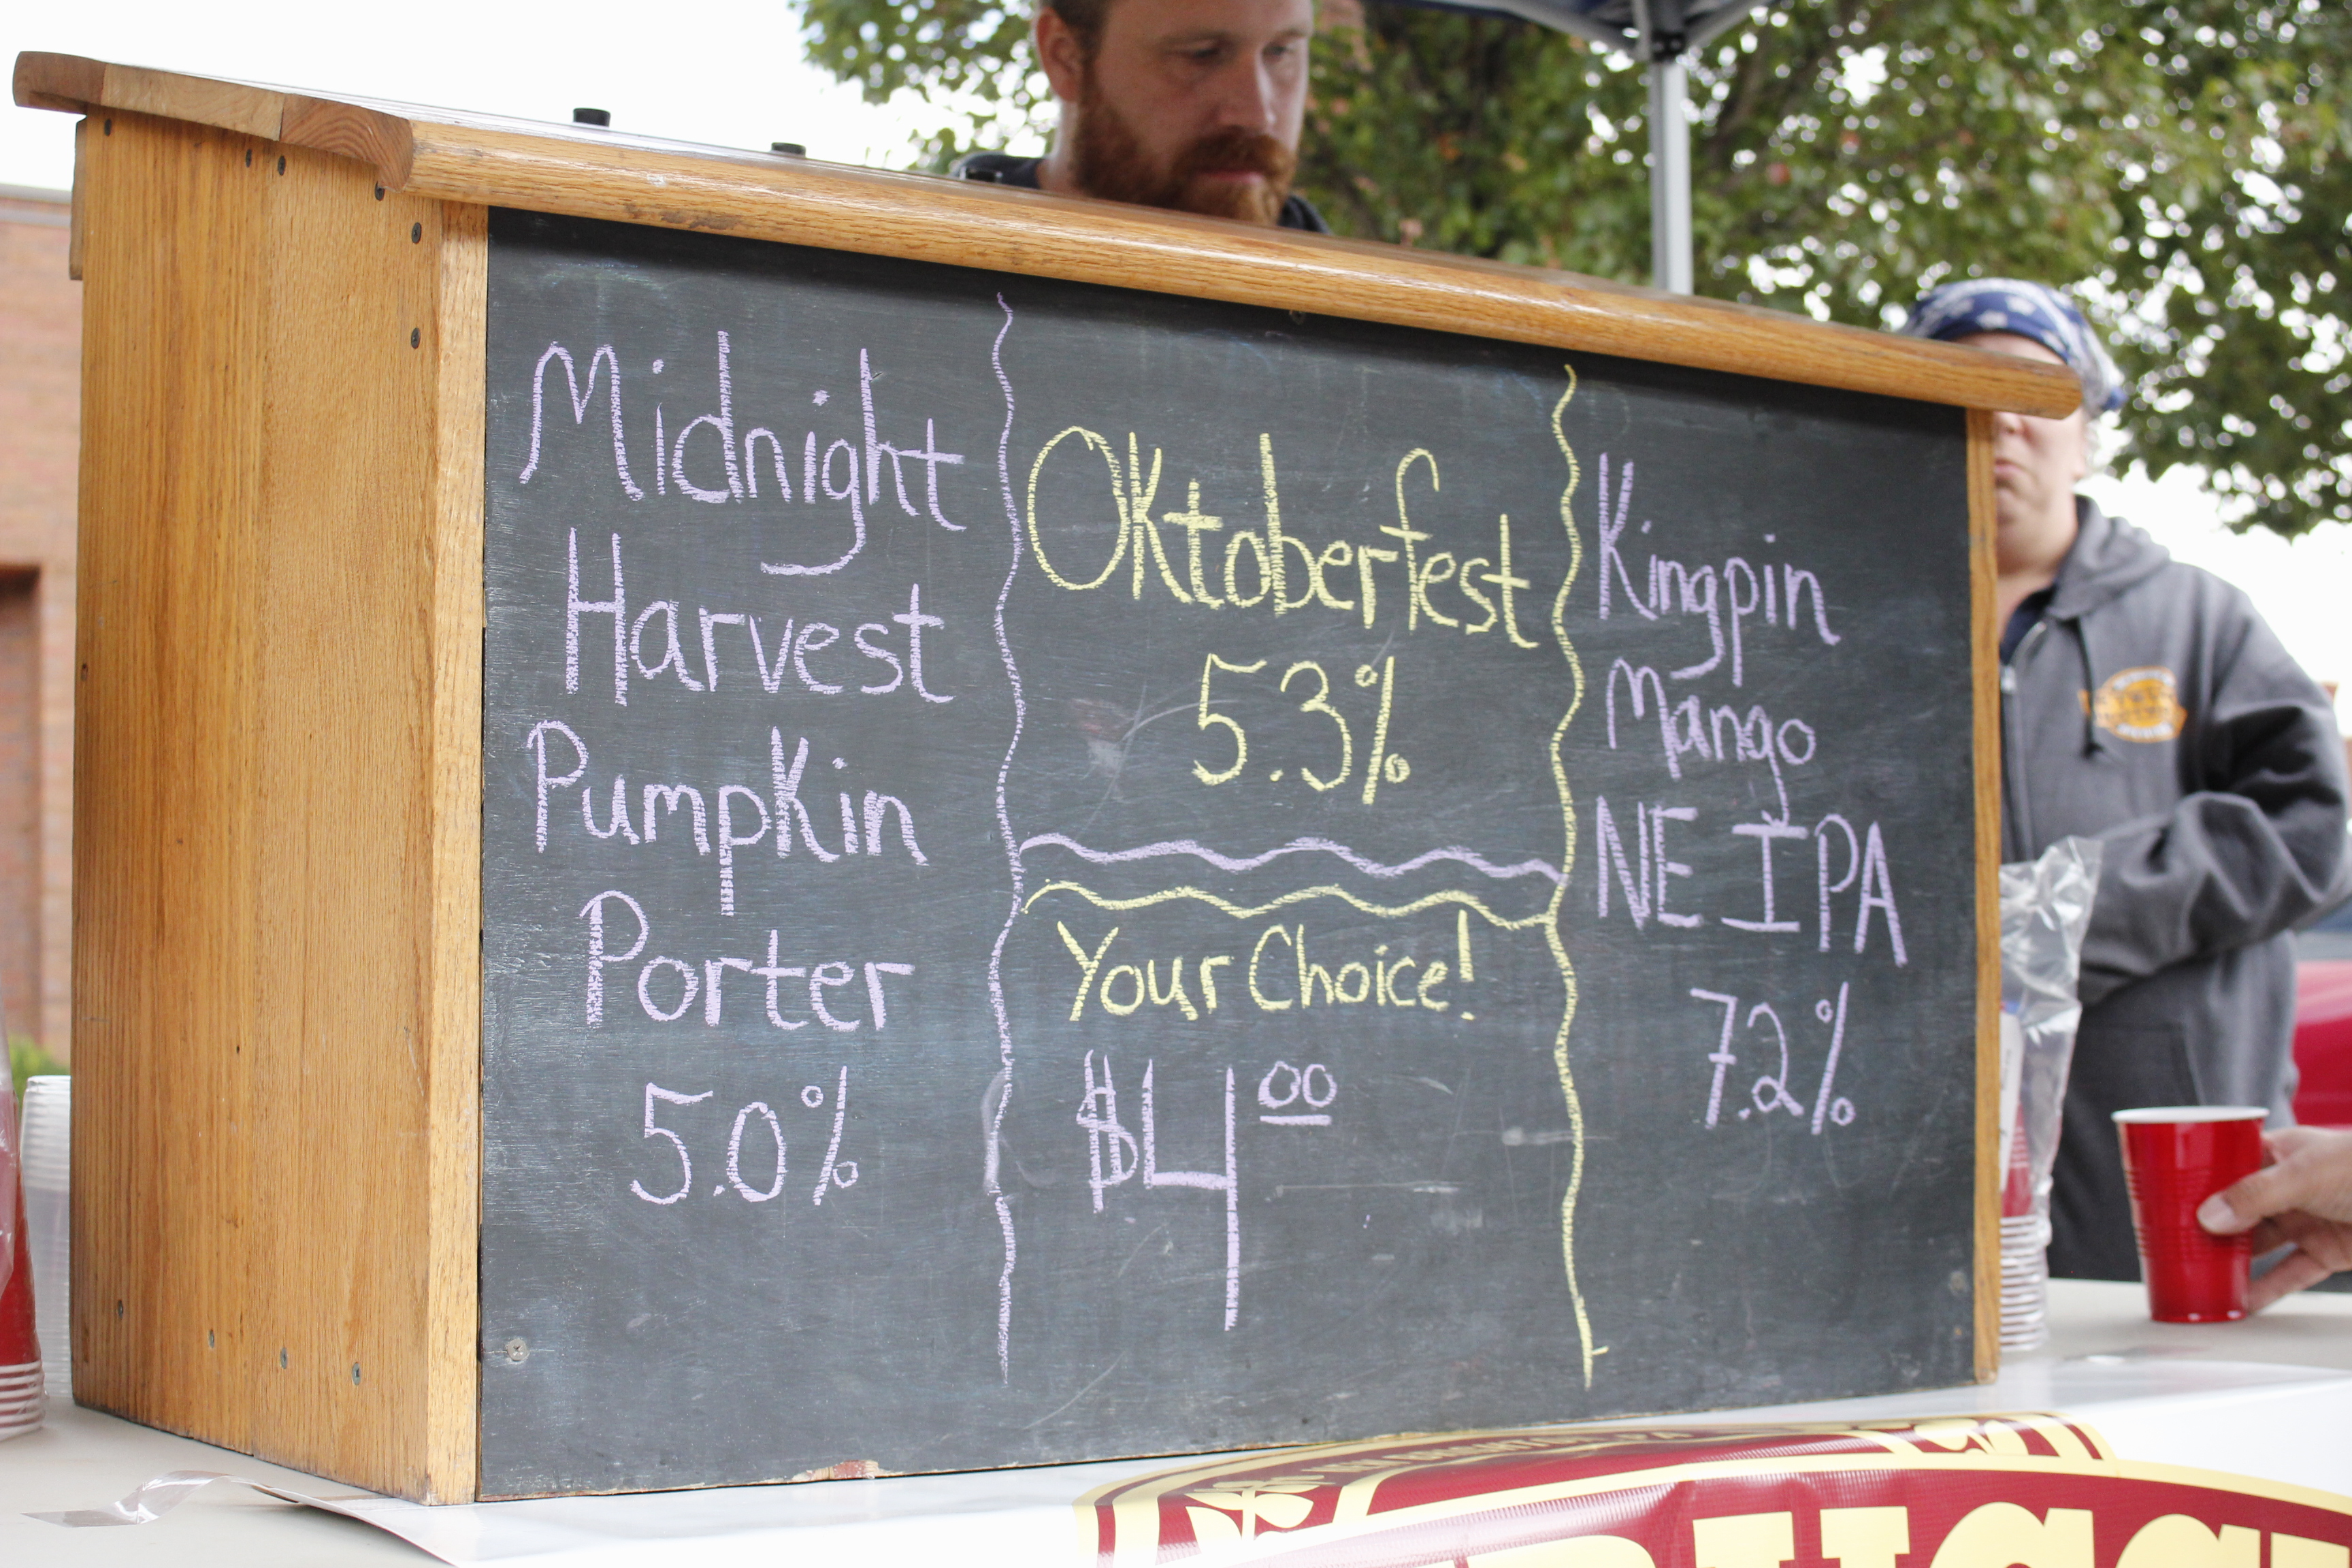 Midnight
Harvest
Pumpkin
Porter
5.0%
Oktoberfest
5.3%
Your Choice!
$4 00
Kingpin
Mango
NE IPA
7.2%